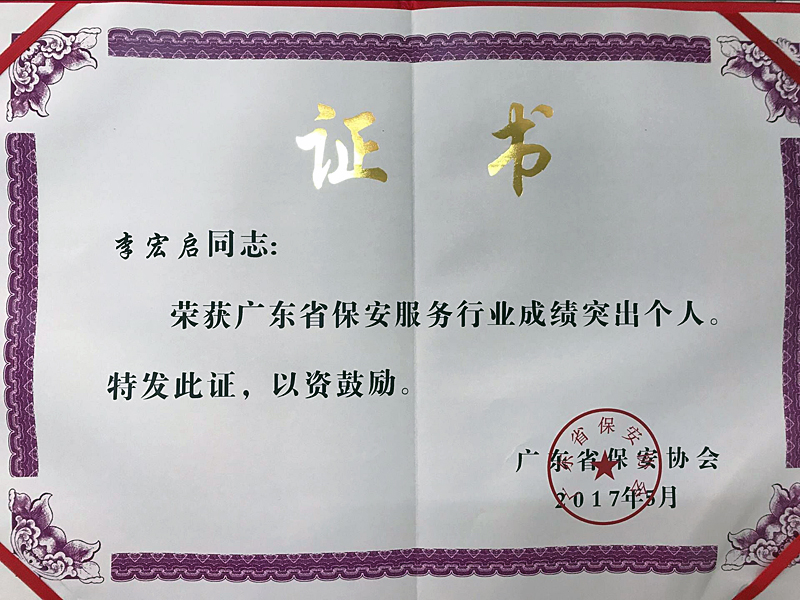 证书
李宏启同志:
荣获广东省保安服务行业成绩突出个人。
特发此证，以资鼓励。
广东省保安协会
2017年5月
广东省保安协会